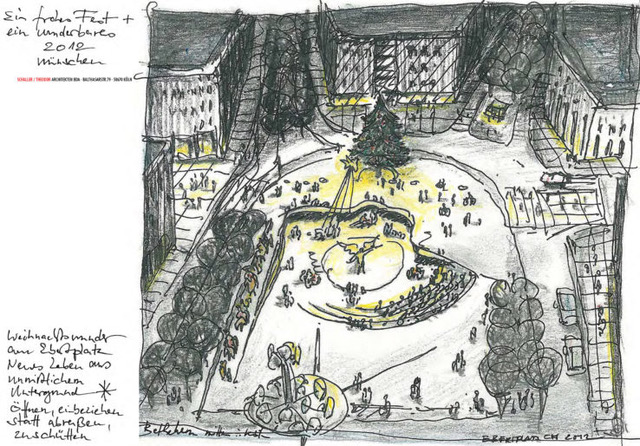 Ein frohes Fest +
ein wunderbares
2012
wünschen
SCHALLER / THEODOR ARCHITEKTEN BDA · BALTHASARSTR.79 · 50670 KÖLN
Weihnachtswunder
am Ebertplatz
Neues Leben aus
unwirtlichem
Untergrund
öffnen, einbeziehen
statt abreißen,
zuschütten
Bethlehem mitten
EBERTPLATZ CH 2011